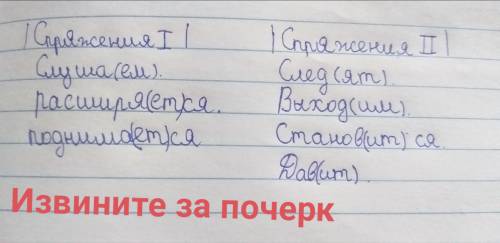 |Спряжения I|
Слуша(ем).
расширя(ет)ся.
поднима(ет)ся
|Спряжения II|
След(ят).
Выход(им).
Станов(ит)ся.
Дав(ит).
Извините за почерк